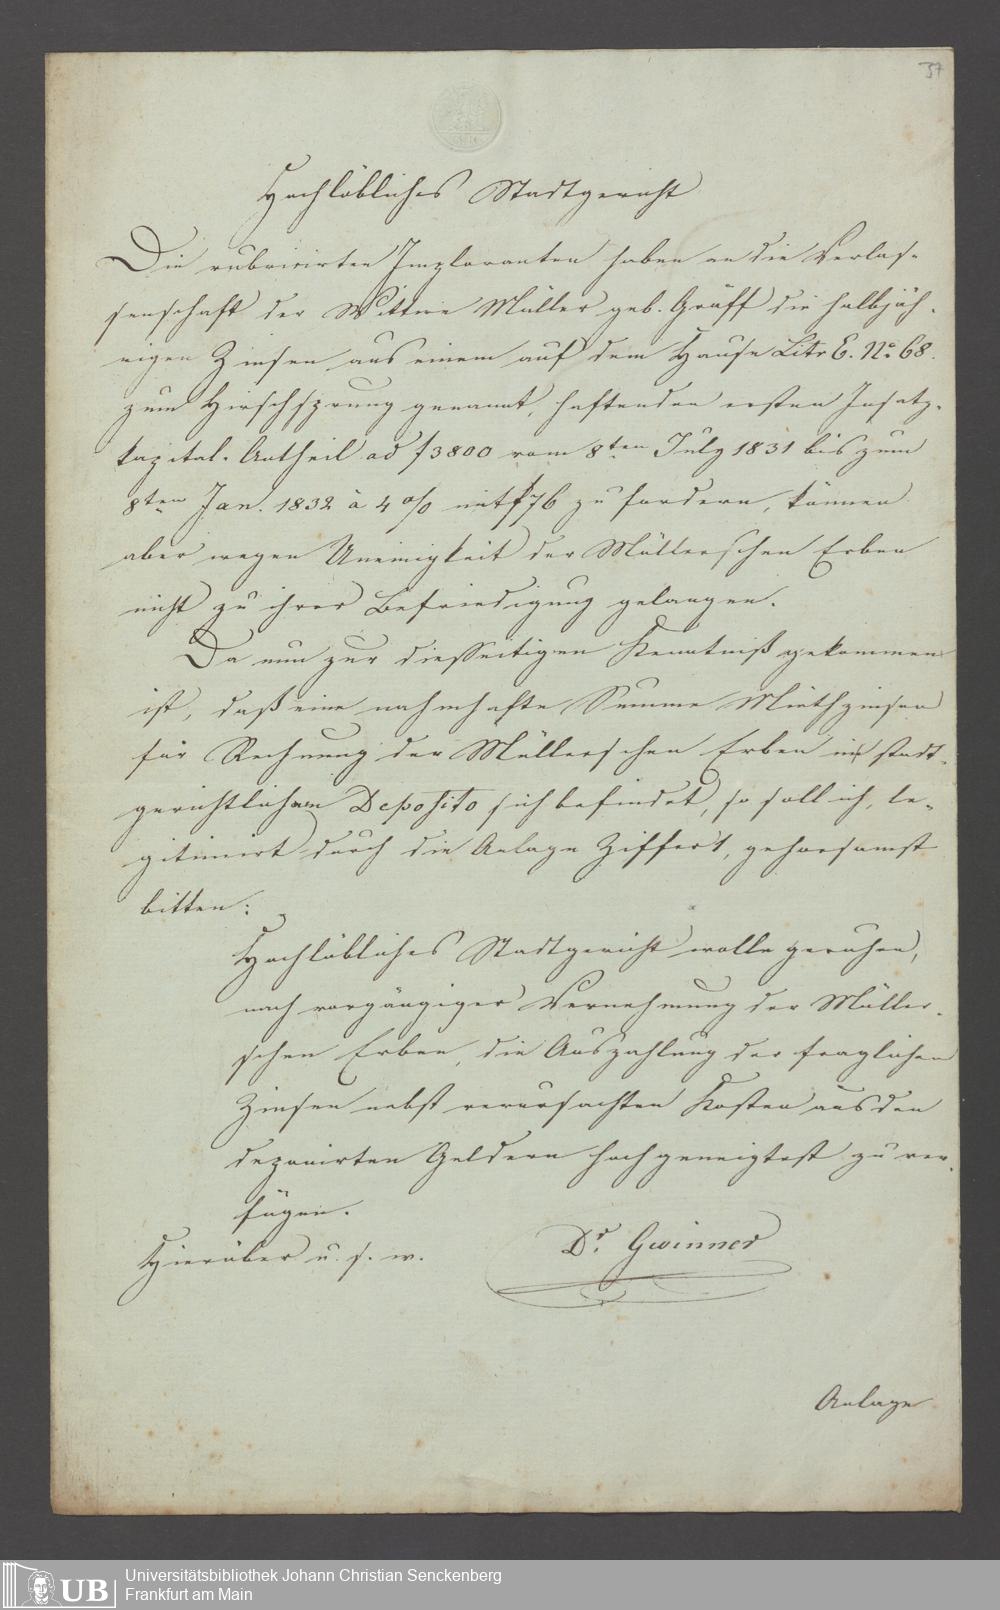 37
Hochlöbliches Stadtgericht
Die rubricirten Imploranten haben an die Verlas-
senschaft der Wittwe Müller geb. Gräff die halbjäh-
rigen Zinsen aus einem auf dem Hause Litr E. No. 68.
zum Hirschsprung genannt, haftenden ersten Insatz-
kapital-Antheil ad f 3800 vom 8ten July 1831 bis zum
8ten Jan. 1832 à 4 % mit f 76 zu fordern, können
aber wegen Uneinigkeit der Müllerschen Erben
nicht zu ihrer Befriedigung gelangen.
Da nun zur diesseitigen Kenntniß gekommen
ist, daß eine nahmhafte Summe Miethzinsen
für Rechnung der Müllerschen Erben im stadt-
gerichtlichen Deposito sich befindet, so soll ich, le-
gitimirt durch die Anlage Ziffer 1, gehorsamst
bitten:
Hochlöbliches Stadtgericht wolle geruhen,
nach vorgängiger Vernehmung der Müller-
schen Erben, die Auszahlung der fraglichen
Zinsen nebst verursachten Kosten aus den
deponirten Geldern hochgeneigtest zu ver-
fügen.
Hierüber u. s. w.
Dr. Gwinner
Anlage
UB
Universitätsbibliothek Johann Christian Senckenberg
Frankfurt am Main